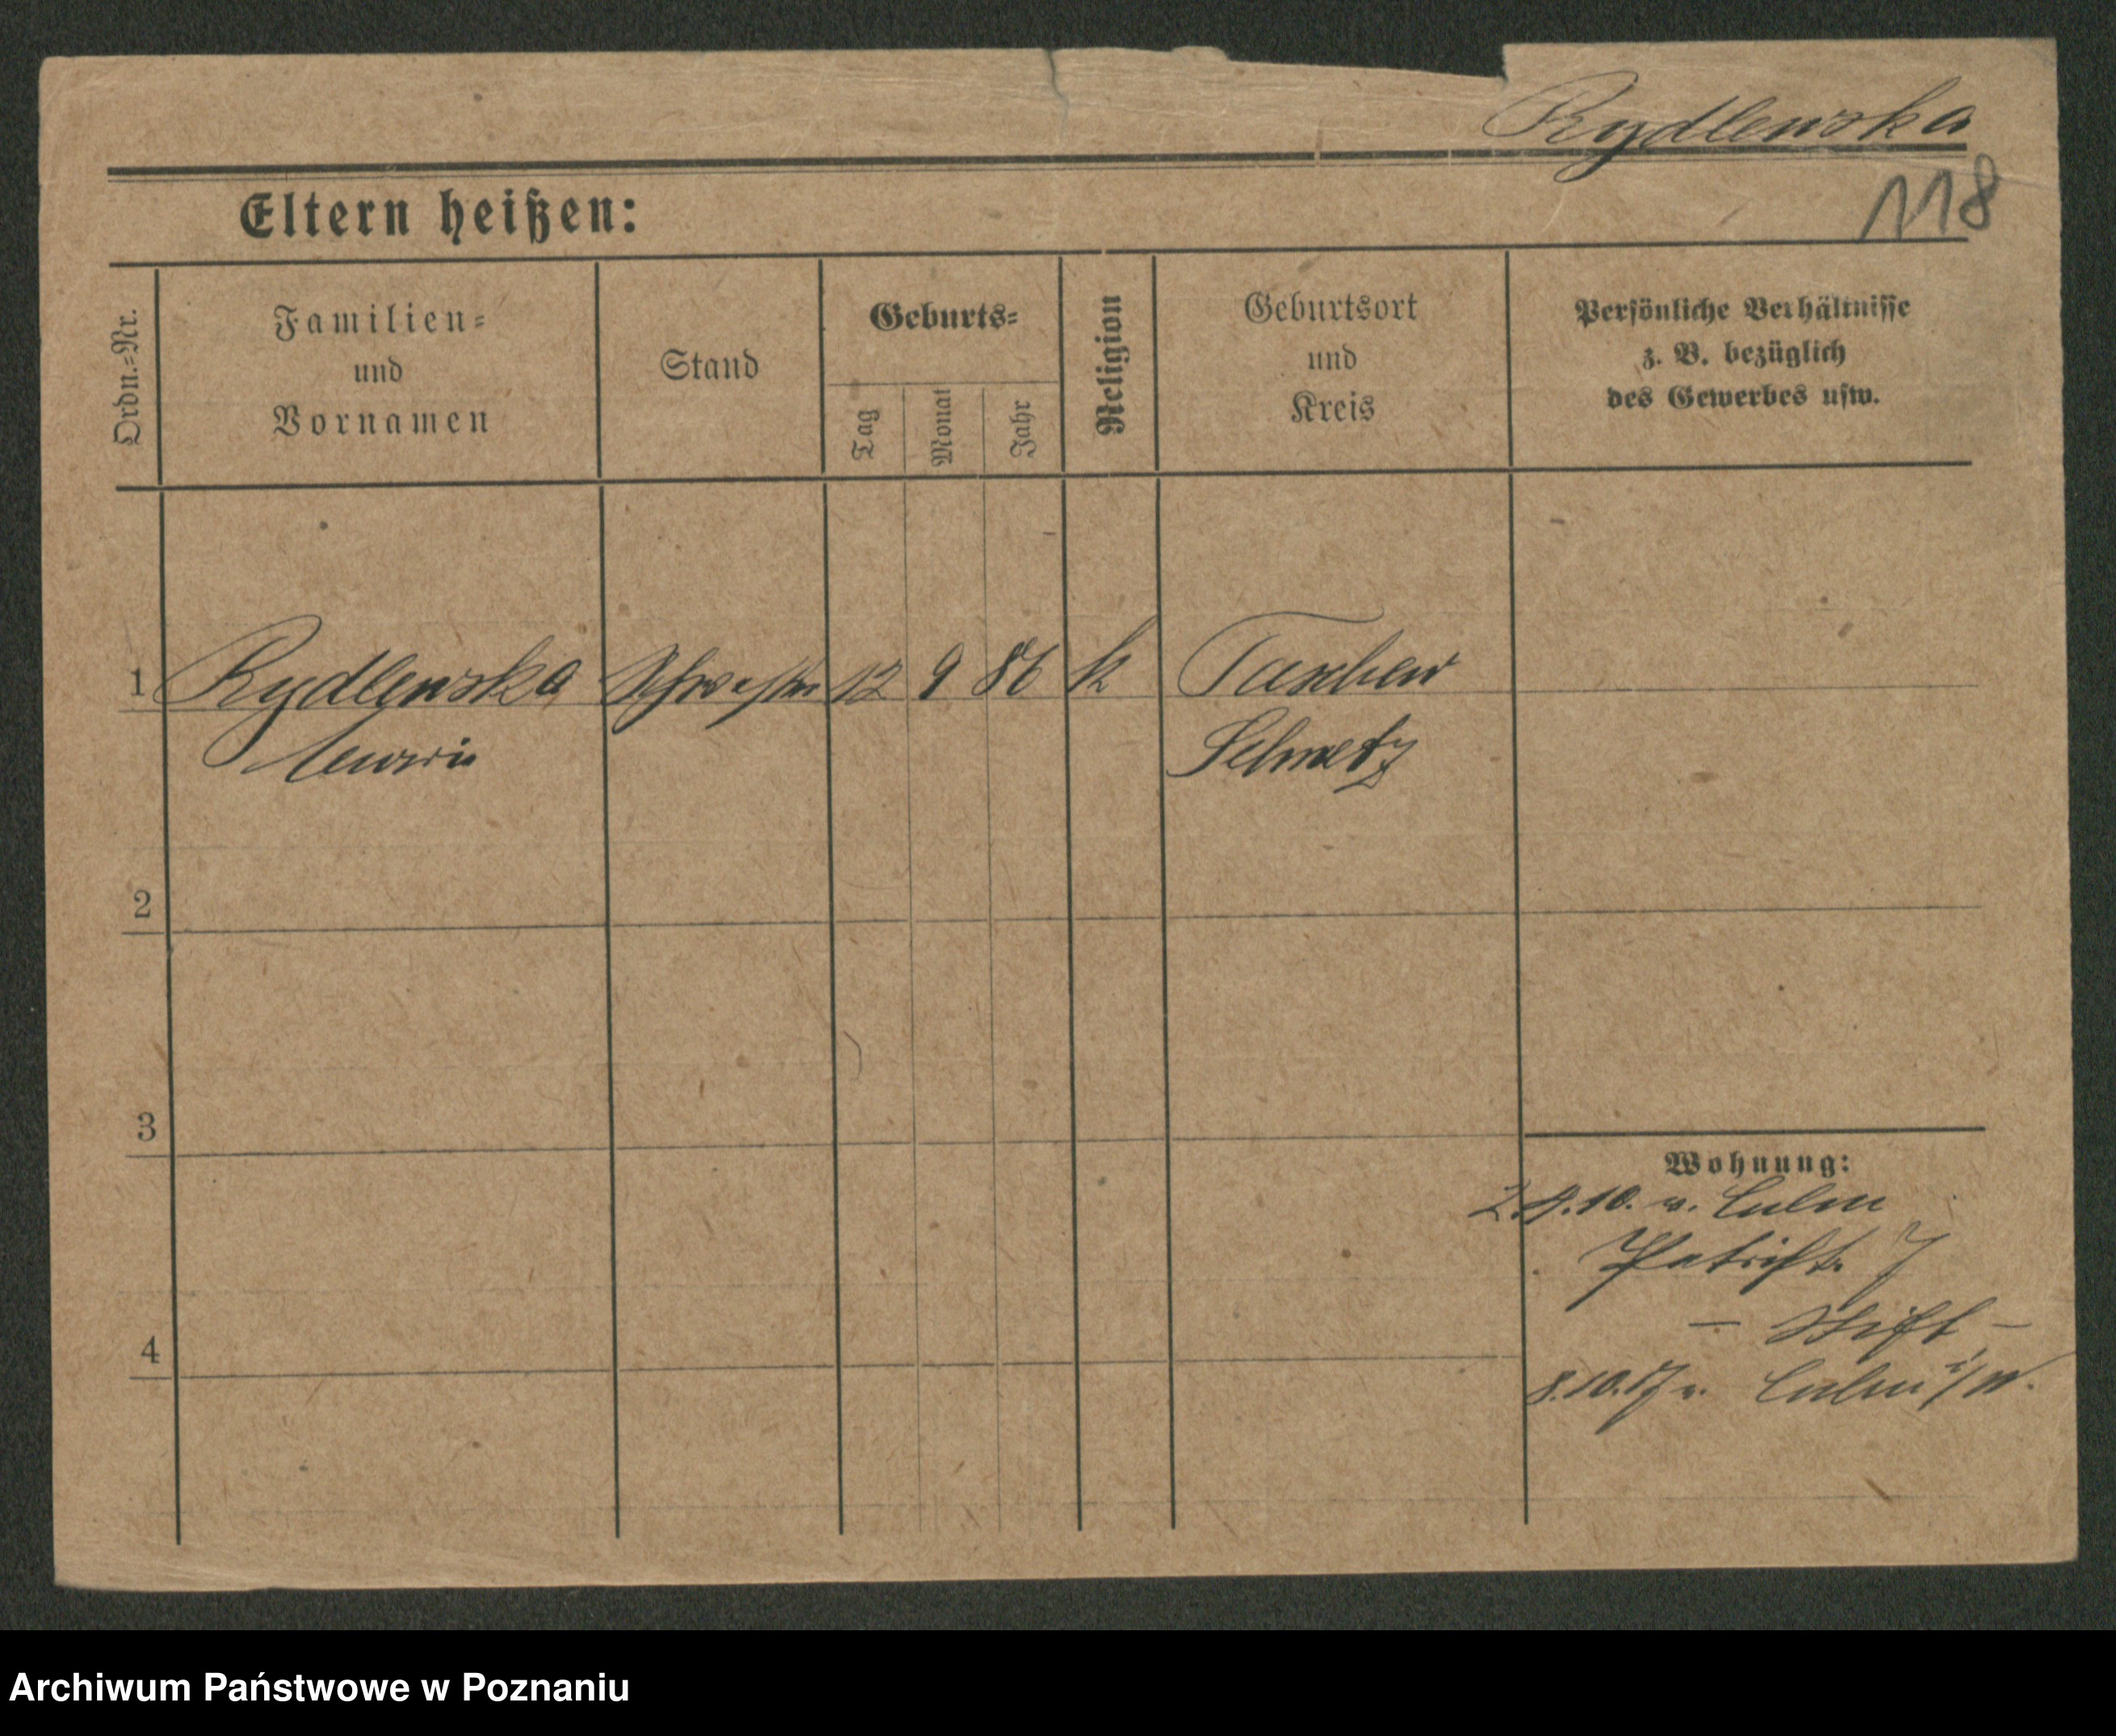 Rydlewska
118
Eltern heißen:
Ordn.=Nr.
Familien=
und
Vornamen
Stand
Geburts=
Tag
Monat
Jahr
Religion
Geburtsort
und
Kreis
Persönliche Verhältnisse
z. B. bezüglich
des Gewerbes usw.
1 Rydlewska Schwester 12 9 86 k
Schwetz
2
3
Wohnung:
2.9.10. v. Culm
7
– Stift –
4
8.10.17 v. Culm i/W.
Archiwum Państwowe w Poznaniu